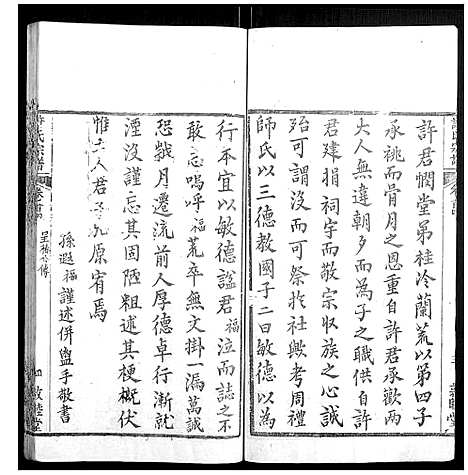 許君憫堂弟桂冷蘭荒以第四子
承祧而骨月之恩重自許君承歡兩
大人無違朝夕而為子之職供自許
君建損祠宇而敬宗収族之心誠
殆可謂没而可祭於社與考周禮
師氏以三德教國子二曰敏德以為
行本宜以敏德謚君福泣而誌之不
敢忘嗚呼福荒卒無文掛一漏萬誠
恐歲月遷流前人厚德卓行漸就
湮没謹忘其固陋粗述其梗概伏
惟大人君子九原宥焉
孫遐福謹述併盥手敬書
許氏宗譜
卷首
敦睦堂